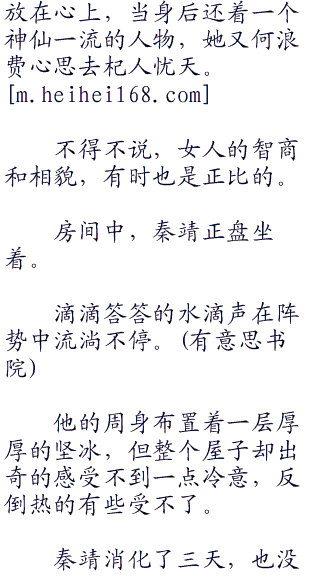 放在心上，当身后还着一个
神仙一流的人物，她又何浪
费心思去杞人忧天。
[m.heihei168.com]
不得不说，女人的智商
和相貌，有时也是正比的。
房间中，秦靖正盘坐
着。
滴滴答答的水滴声在阵
势中流淌不停。(有意思书
院)
他的周身布置着一层厚
厚的坚冰，但整个屋子却出
奇的感受不到一点冷意，反
倒热的有些受不了。
秦靖消化了三天，也没